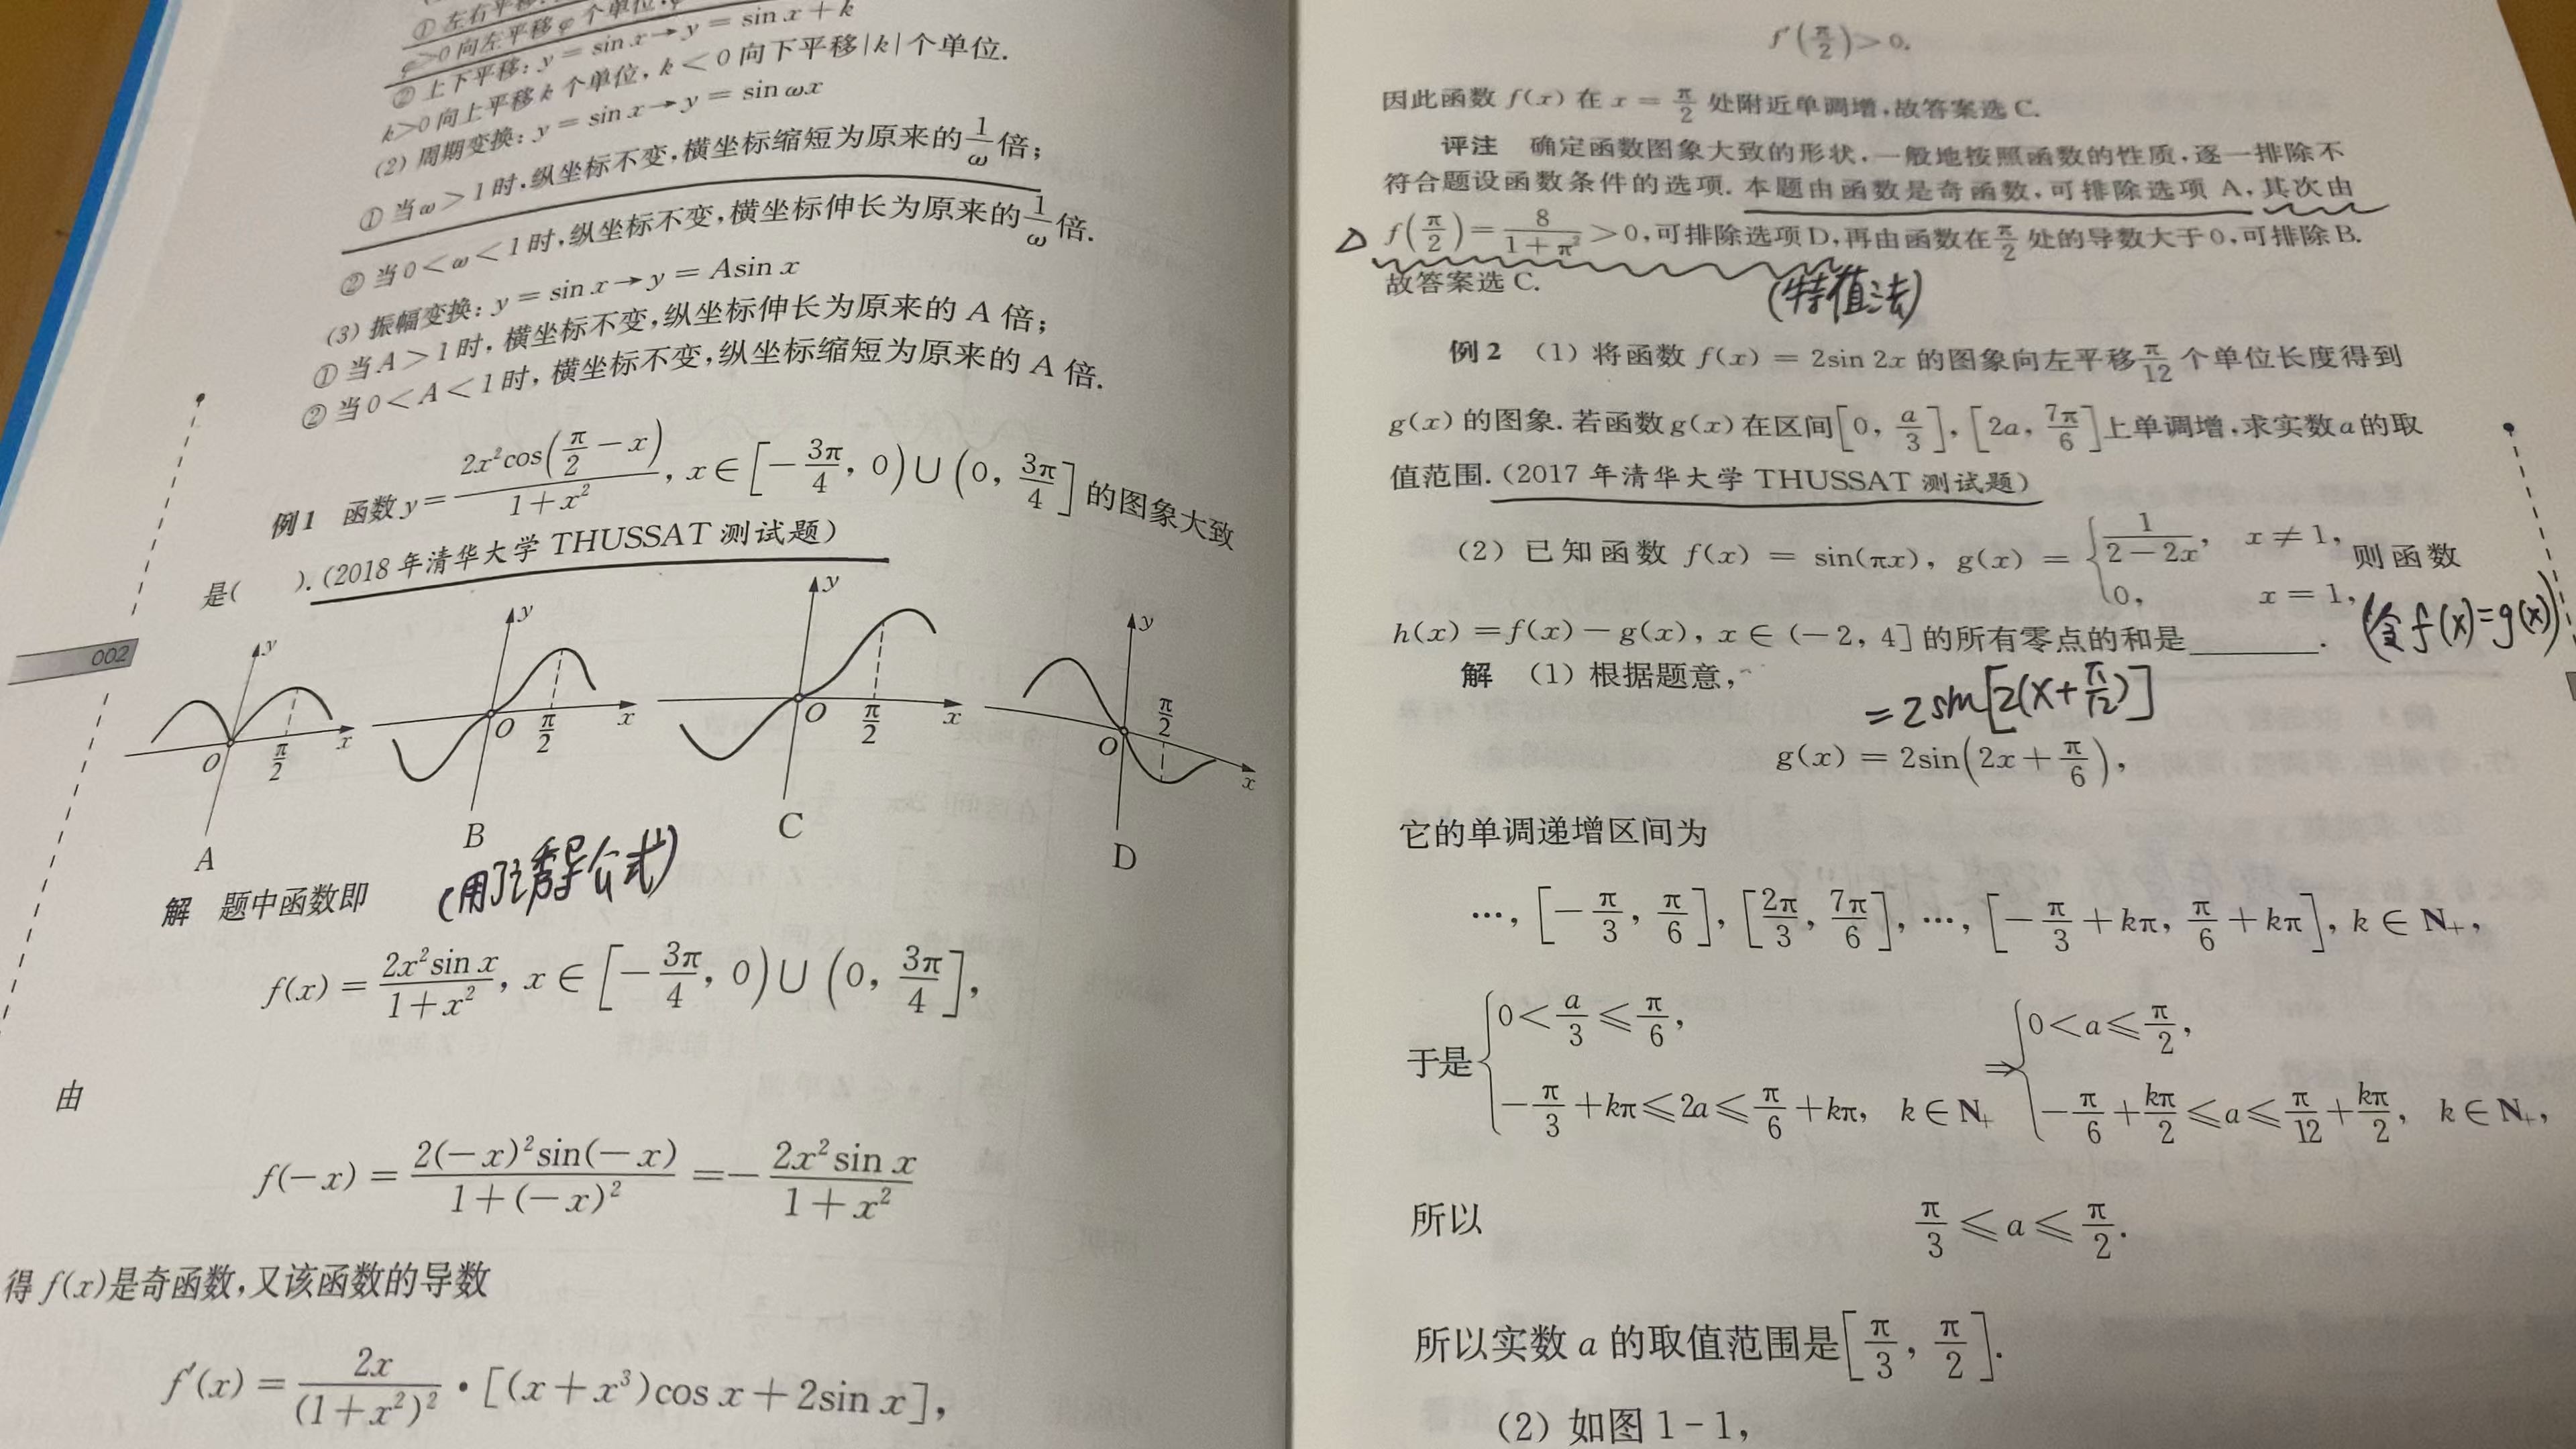 ① 左右平移:
φ>0向左平移φ个单位,
② 上下平移: y = sin x → y = sin x + k
k>0向上平移k个单位, k<0向下平移|k|个单位.
(2) 周期变换: y = sin x → y = sin ωx
① 当ω>1时,纵坐标不变,横坐标缩短为原来的1/ω倍;
② 当0<ω<1时,纵坐标不变,横坐标伸长为原来的1/ω倍.
(3) 振幅变换: y = sin x → y = Asin x
① 当A>1时,横坐标不变,纵坐标伸长为原来的A倍;
② 当0<A<1时,横坐标不变,纵坐标缩短为原来的A倍.
例1 函数y = 2x²cos(π/2 − x)/(1+x²), x∈[−3π/4, 0)∪(0, 3π/4]的图象大致
是( ).(2018年清华大学THUSSAT测试题)
002
y x O π/2 A
y x O π/2 B
y x O π/2 C
y x O π/2 D
解 题中函数即 (用了诱导公式)
f(x) = 2x²sin x/(1+x²), x∈[−3π/4, 0)∪(0, 3π/4],
由
f(−x) = 2(−x)²sin(−x)/(1+(−x)²) = −2x²sin x/(1+x²)
得f(x)是奇函数,又该函数的导数
f′(x) = 2x/(1+x²)² · [(x+x³)cos x + 2sin x],
f′(π/2)>0.
因此函数f(x)在x = π/2处附近单调增,故答案选C.
评注 确定函数图象大致的形状,一般地按照函数的性质,逐一排除不
符合题设函数条件的选项.本题由函数是奇函数,可排除选项A,其次由
f(π/2) = 8/(1+π²) >0,可排除选项D,再由函数在π/2处的导数大于0,可排除B.
故答案选C.
(特值法)
例2 (1) 将函数f(x) = 2sin 2x的图象向左平移π/12个单位长度得到
g(x)的图象.若函数g(x)在区间[0, a/3], [2a, 7π/6]上单调增,求实数a的取
值范围.(2017年清华大学THUSSAT测试题)
(2) 已知函数f(x) = sin(πx), g(x) = {1/(2−2x), x≠1, 0, x=1, 则函数
h(x) = f(x) − g(x), x∈(−2, 4]的所有零点的和是________. (令f(x)=g(x))
解 (1) 根据题意,
=2sin[2(x+π/12)]
g(x) = 2sin(2x + π/6),
它的单调递增区间为
…, [−π/3, π/6], [2π/3, 7π/6], …, [−π/3 + kπ, π/6 + kπ], k∈N₊,
于是{0<a/3≤π/6, −π/3 + kπ≤2a≤π/6 + kπ, k∈N₊ ⇒ {0<a≤π/2, −π/6 + kπ/2≤a≤π/12 + kπ/2, k∈N₊,
所以 π/3≤a≤π/2.
所以实数a的取值范围是[π/3, π/2].
(2) 如图1-1,